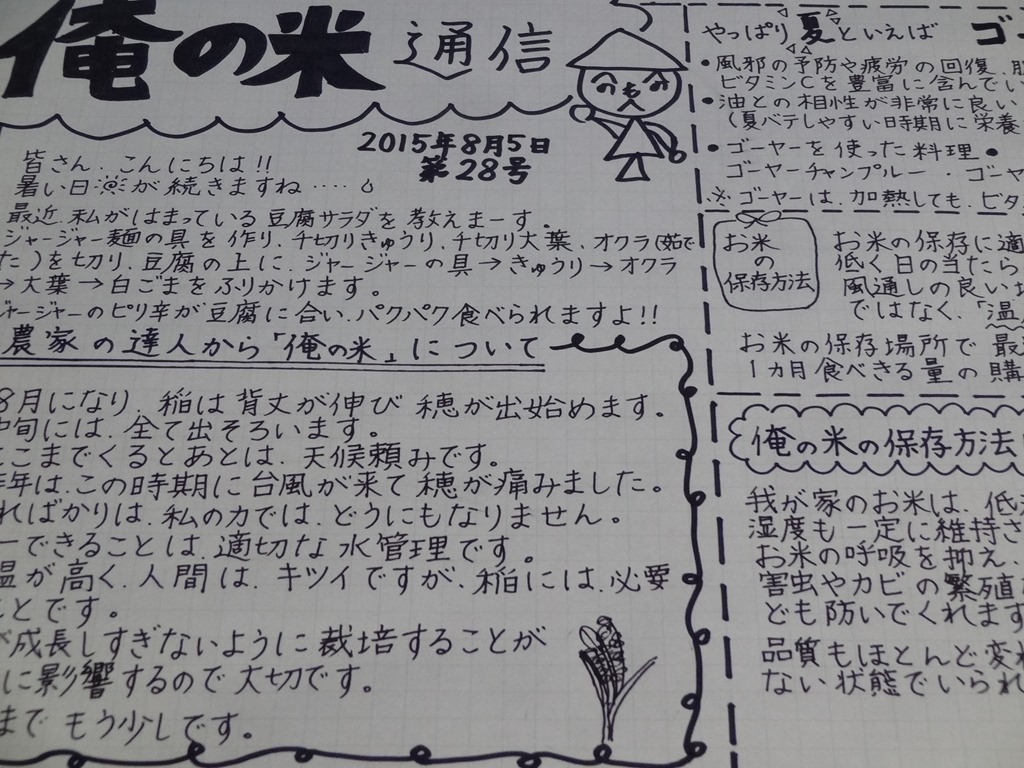 俺の米 通信
2015年8月5日
第28号
皆さん、こんにちは!!
暑い日が続きますね‥‥
最近、私がはまっている豆腐サラダを教えまーす。
ジャージャー麺の具を作り、千切りきゅうり、千切り大葉、オクラ(茹で
た)を切り、豆腐の上に、ジャージャーの具→きゅうり→オクラ
→大葉→白ごまをふりかけます。
ジャージャーのピリ辛が豆腐に合い、パクパク食べられますよ!!
農家の達人から「俺の米」について
8月になり、稲は背丈が伸び 穂が出始めます。
中旬には、全て出そろいます。
ここまでくるとあとは、天候頼みです。
昨年は、この時期に台風が来て穂が痛みました。
ればかりは、私の力では、どうにもなりません。
一できることは、適切な水管理です。
温が高く、人間は、キツイですが、稲には、必要
ことです。
が成長しすぎないように栽培することが
に影響するので大切です。
まで もう少しです。
やっぱり夏といえば ゴー
・風邪の予防や疲労の回復、
ビタミンCを豊富に含んでい
・油との相性が非常に良い
(夏バテしやすい時期に栄養
・ゴーヤーを使った料理・
ゴーヤーチャンプルー・ゴーヤ
※ゴーヤーは、加熱しても、ビタ
お米
の
保存方法
お米の保存に適
低く日の当たら
風通しの良い
ではなく、「温
お米の保存場所で 最
1カ月食べきる量の購
俺の米の保存方法
我が家のお米は、低
湿度も一定に維持さ
お米の呼吸を抑え、
害虫やカビの繁殖
ども防いでくれます
品質もほとんど変わ
ない状態でいられ